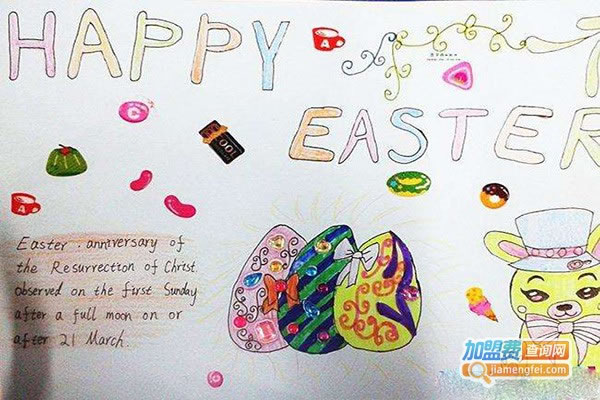 HAPPY
EASTER
A
C
100
A
Easter . anniversary of
the Resurrection of Christ
observed on the first Sunday
after a full moon on or
after 21 March.
加盟费查询网
jiamengfei.com